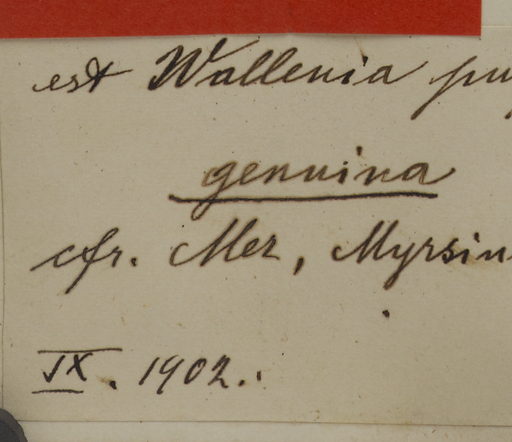 est Wallenia
genuina
cfr. Mez, Myrsin
IX. 1902.